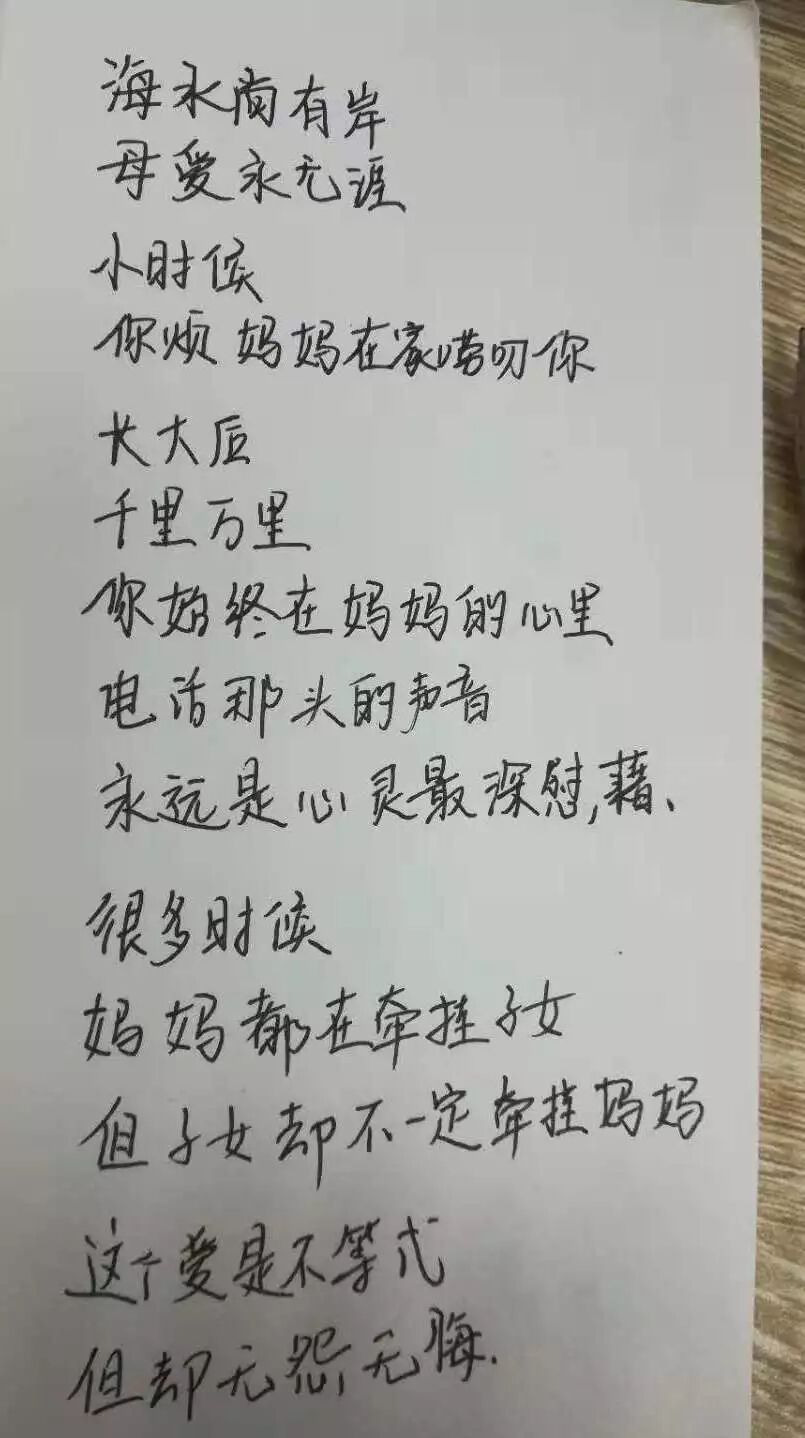 海水尚有岸
母爱永无涯
小时候
你烦妈妈在家唠叨你
长大后
千里万里
你始终在妈妈的心里
电话那头的声音
永远是心灵最深慰藉、
很多时候
妈妈都在牵挂子女
但子女却不一定牵挂妈妈
这个爱是不等式
但却无怨无悔.